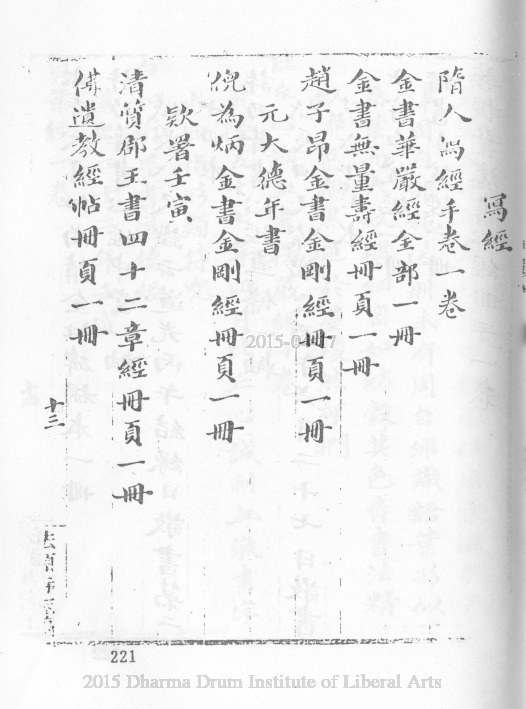 寫經
隋人寫經手卷一卷
金書華嚴經全部一冊
金書無量壽經冊頁一冊
趙子昂金書金剛經冊頁一冊
元大德年書
倪為炳金書金剛經冊頁一冊
欵署壬寅
清質郡王書四十二章經冊頁一冊
佛遺教經帖冊頁一冊
十三
221
2015 Dharma Drum Institute of Liberal Arts